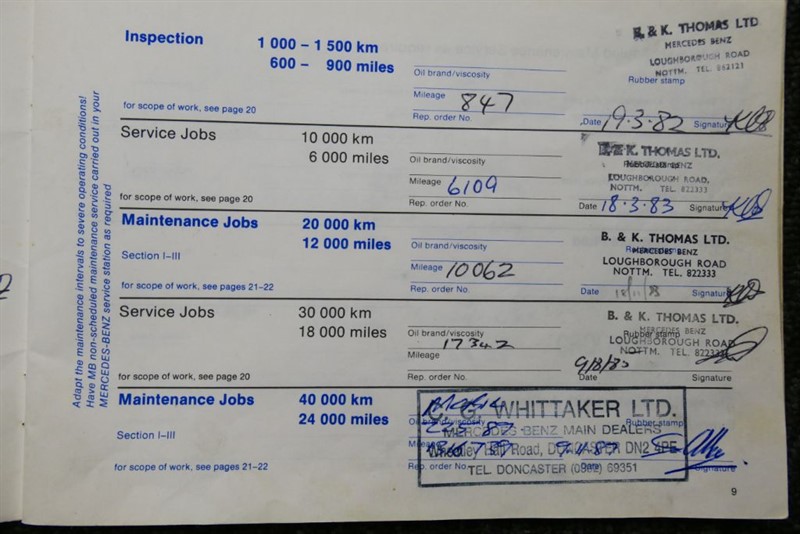 Adapt the maintenance intervals to severe operating conditions!
Have MB non-scheduled maintenance service carried out in your
MERCEDES-BENZ service station as required
Inspection 1 000 – 1 500 km
600 – 900 miles
for scope of work, see page 20
Oil brand/viscosity
Mileage 847
Rep. order No.
B. & K. THOMAS LTD
MERCEDES BENZ
LOUGHBOROUGH ROAD
NOTTM. TEL. 862121
Rubber stamp
Date 19.3.82 Signature
Service Jobs 10 000 km
6 000 miles
for scope of work, see page 20
Oil brand/viscosity
Mileage 6109
Rep. order No.
B. & K. THOMAS LTD.
MERCEDES BENZ
Rubber stamp
LOUGHBOROUGH ROAD,
NOTTM. TEL. 822333
Date 18.3.83 Signature
Maintenance Jobs 20 000 km
12 000 miles
Section I–III
for scope of work, see pages 21–22
Oil brand/viscosity
Mileage 10062
Rep. order No.
B. & K. THOMAS LTD.
MERCEDES BENZ
Rubber stamp
LOUGHBOROUGH ROAD
NOTTM. TEL. 822333
Date Signature
Service Jobs 30 000 km
18 000 miles
for scope of work, see page 20
Oil brand/viscosity
17342
Mileage
Rep. order No.
B. & K. THOMAS LTD.
MERCEDES BENZ
Rubber stamp
LOUGHBOROUGH ROAD
NOTTM. TEL.
Date
Signature
Maintenance Jobs 40 000 km
24 000 miles
Section I–III
for scope of work, see pages 21–22
C. G. WHITTAKER LTD.
Oil brand/viscosity
Rubber stamp
MERCEDES-BENZ MAIN DEALERS
Mileage
Wheatley Hall Road, DONCASTER DN2 4PE
Rep. order No.
Date
Signature
TEL DONCASTER (0302) 69351
9